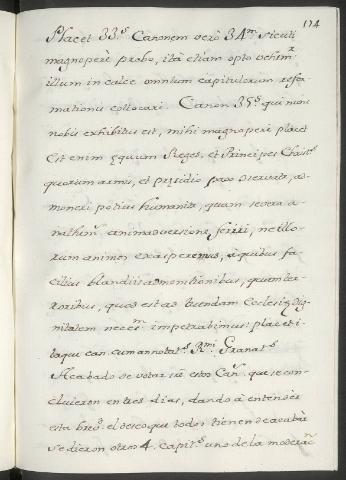 174
Placet 33.s Canonem verò 34.m sicuti
magnoperè probo, ità etiam opto vehem.r
illum in calce omnium capitulorum refor
mationis collocari. Canon 35.s qui nunc
nobis exhibitus est, mihi magnoperè placet
Est enim ęquum Reges, et Principes Christ.s
quorum armis, et pręsidio pax servata, ad-
moneri potius humanità, quam severa a-
nathem.s animadversione feriri, ne illo-
rum animos exasperemus, à quibus fa-
cilius blandiis admonitionibus, quam ter-
roribus, quod est ad tuendam Ecclesię dig-
nitatem neces.m impetrabimus: placet i-
taque can. cum annotat.s R.mi Granat.s
Acabado de votar sũ estos Can.s que se con-
cluieron en tres dias, dando à entender
esta brev.d el deseo que todos tienen de acabar
se dieron otros 4. Capit.s uno de la moderac.n